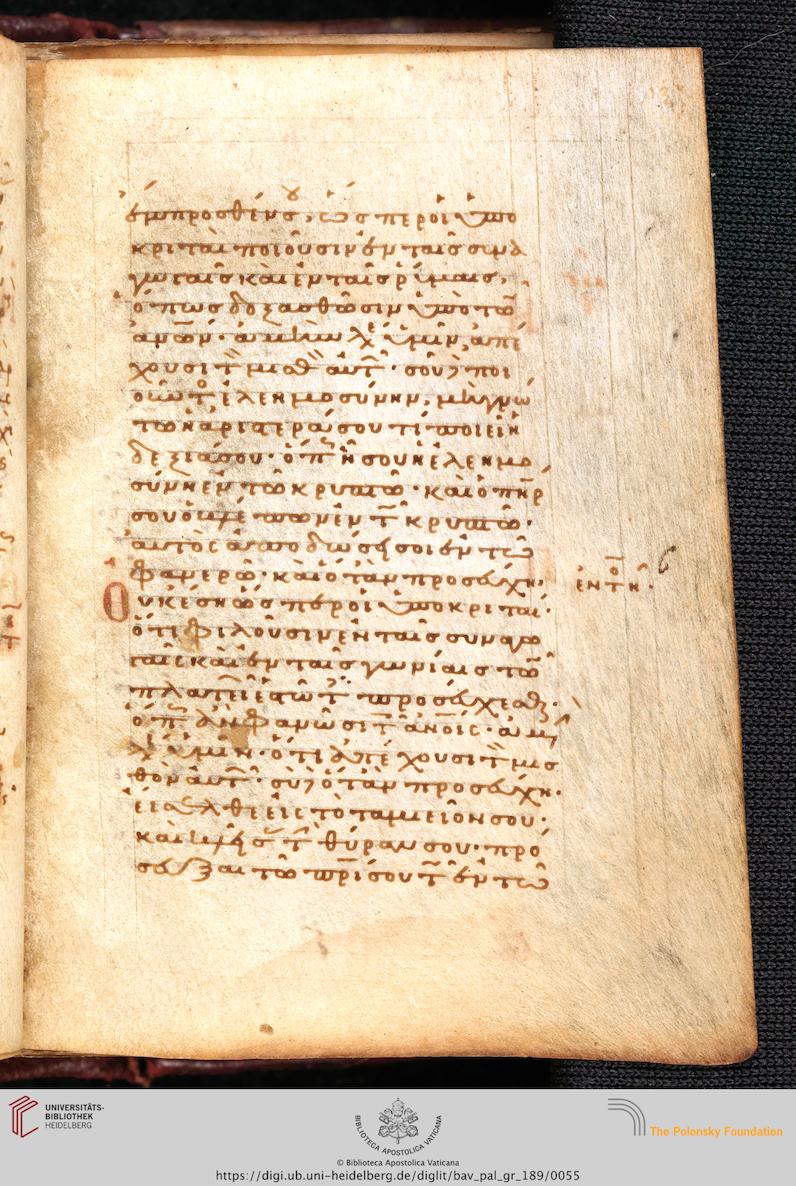 ἔμπροσθέν σου, ὥσπερ οἱ ὑπο
κριταὶ ποιοῦσιν ἐν ταῖς συνα
γωγαῖς καὶ ἐν ταῖς ῥύμαις,
ὅπως δοξασθῶσιν ὑπὸ τῶν
ἀνων· ἀμὴν λέγω ὑμῖν, ἀπέ
χουσι τὸν μισθὸν αὐτῶν· σοῦ δὲ ποι
οῦντος ἐλεημοσύνην, μὴ γνώ
τω ἡ ἀριστερά σου τί ποιεῖ ἡ
δεξιά σου· ὅπως ᾖ σου ἡ ἐλεημο
σύνη ἐν τῷ κρυπτῷ· καὶ ὁ πηρ
σου ὁ βλέπων ἐν τῷ κρυπτῷ·
αὐτὸς ἀποδώσει σοι ἐν τῷ
φανερῷ· καὶ ὅταν προσεύχῃ·
Οὐκ ἔσῃ ὥσπερ οἱ ὑποκριταί·
ὅτι φιλοῦσιν ἐν ταῖς συναγω
γαῖς καὶ ἐν ταῖς γωνίαις τῶν
πλατειῶν ἑστῶτες προσεύχεσθαι·
ὅπως ἂν φανῶσι τοῖς ἀνοις· ἀμὴν
λέγω ὑμῖν· ὅτι ἀπέχουσι τὸν μισ
θὸν αὐτῶν· σὺ δὲ ὅταν προσεύχῃ·
εἴσελθε εἰς τὸ ταμιεῖόν σου·
καὶ κλείσας τὴν θύραν σου· πρό
σευξαι τῷ πρί σου τῷ ἐν τῷ
UNIVERSITÄTS-
BIBLIOTHEK
HEIDELBERG
BIBLIOTECA APOSTOLICA VATICANA
The Polonsky Foundation
© Biblioteca Apostolica Vaticana
https://digi.ub.uni-heidelberg.de/diglit/bav_pal_gr_189/0055